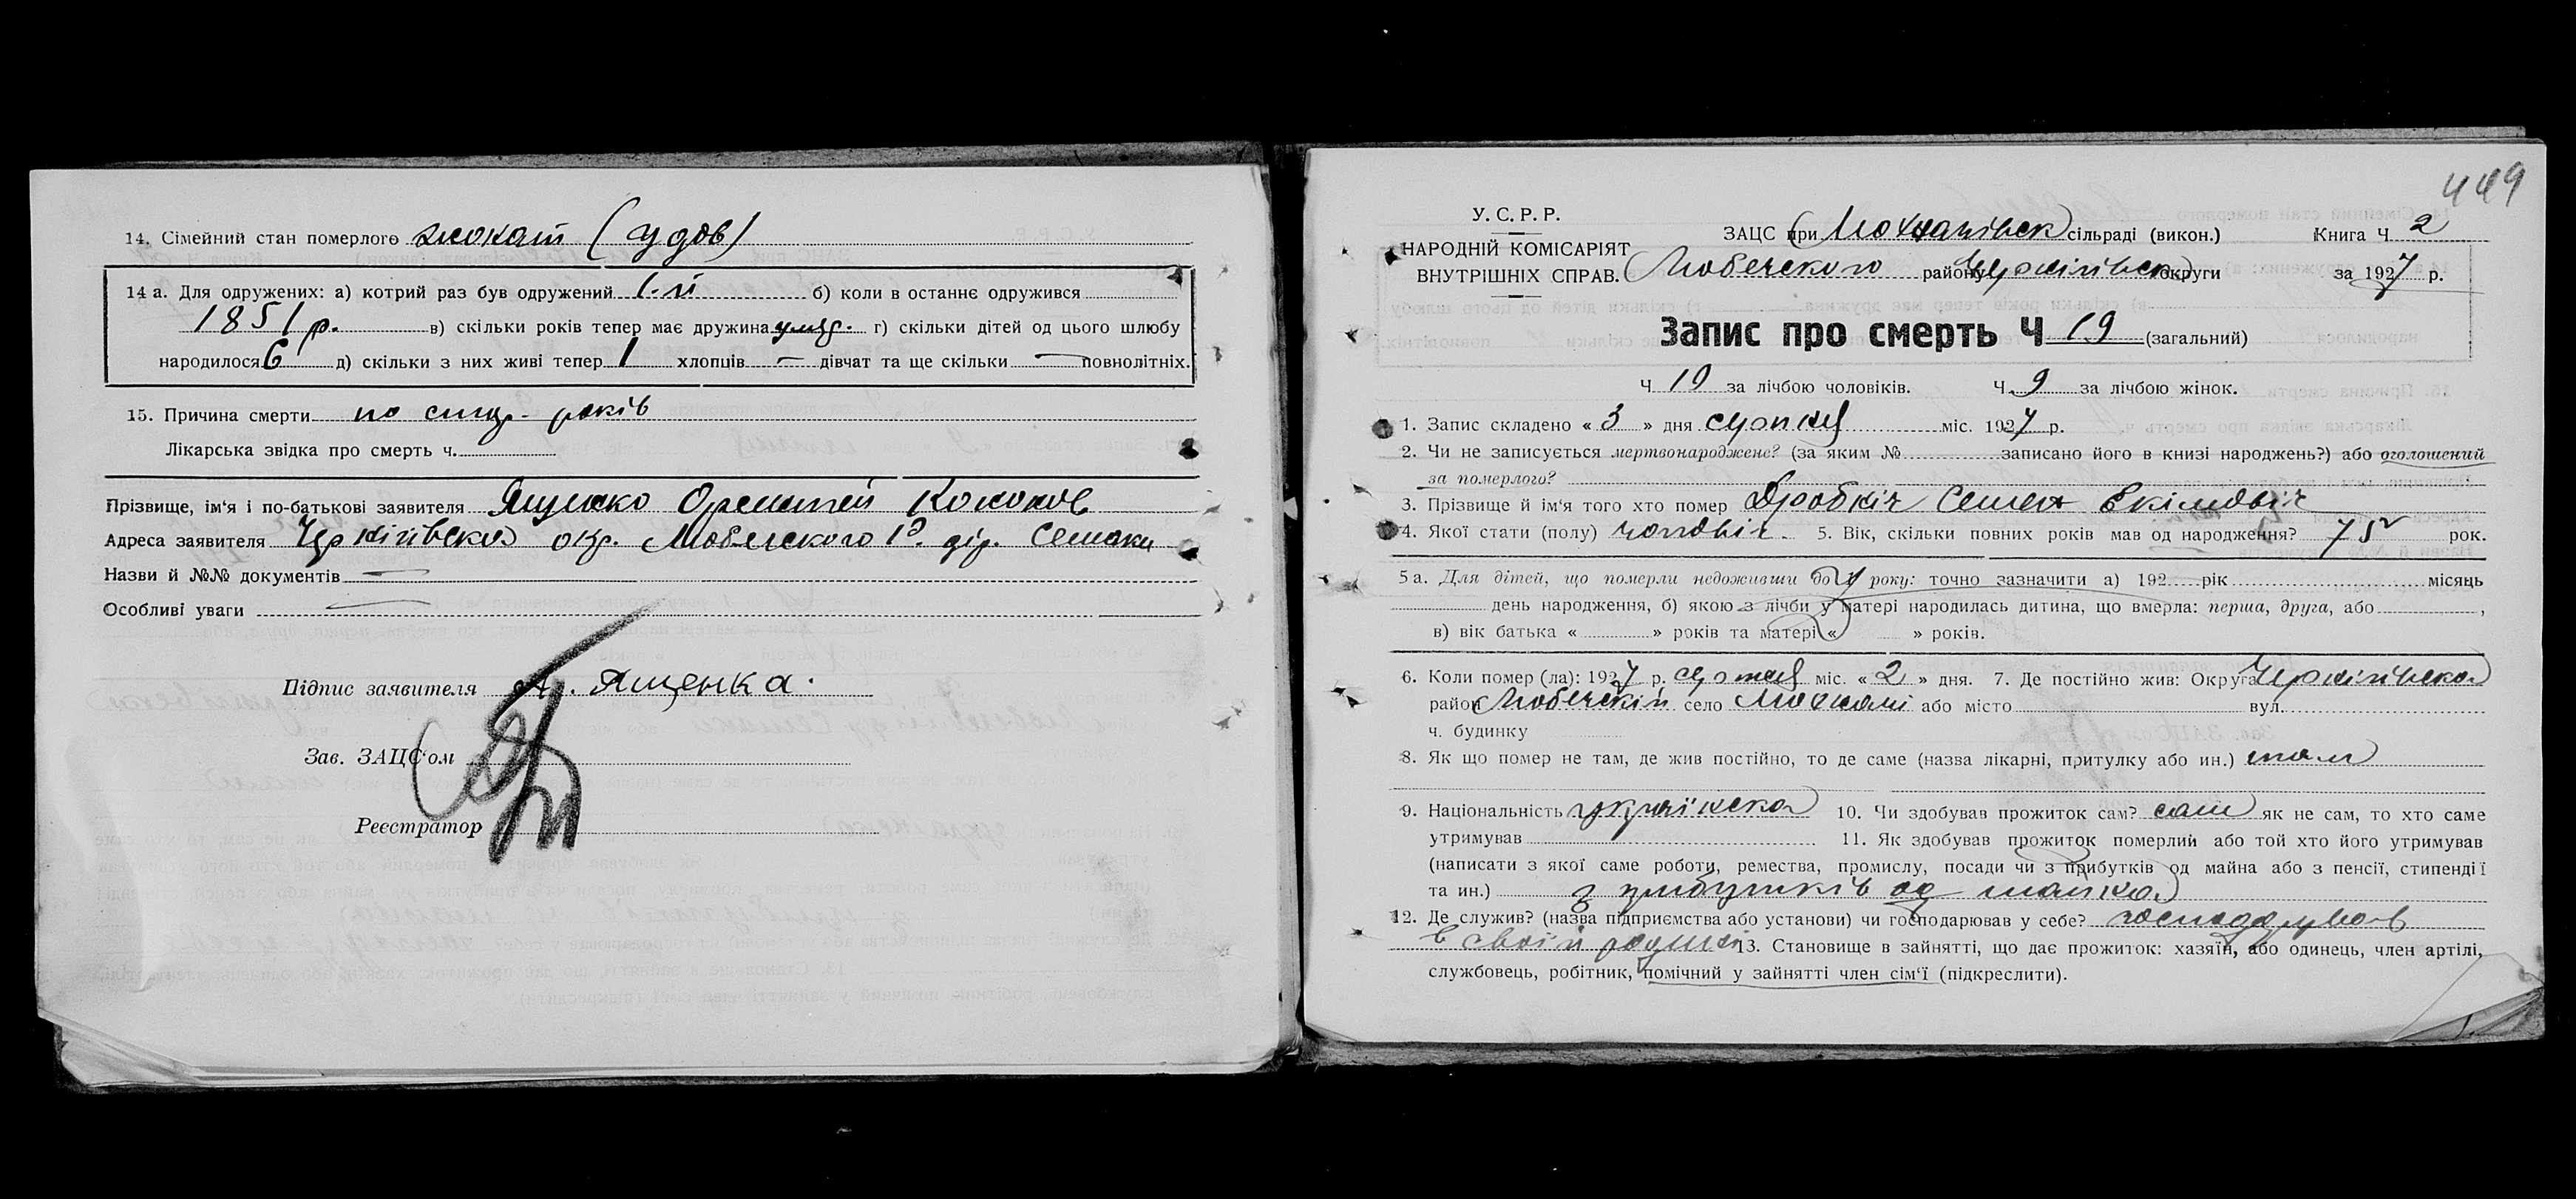 14. Сімейний стан померлого жонат (удов)
14 а. Для одружених: а) котрий раз був одружений 1-й б) коли в останнє одружився
1851 р. в) скільки років тепер має дружина г) скільки дітей од цього шлюбу
народилося 6 д) скільки з них живі тепер 1 хлопців — дівчат та ще скільки — повнолітніх.
15. Причина смерти по стар. років
Лікарська звідка про смерть ч.
Прізвище, ім'я і по-батькові заявителя Ященко
Адреса заявителя Чернігівська окр. Любечского р. Семаки
Назви й №№ документів —
Особливі уваги —
Підпис заявителя А. Ященка.
Зав. ЗАЦС'ом
Реєстратор
449
У. С. Р. Р.
НАРОДНІЙ КОМІСАРІЯТ
ВНУТРІШНІХ СПРАВ.
ЗАЦС при Мохнатівск сільраді (викон.) Книга Ч. 2
Любечского району Чернігівск округи за 1927 р.
Запис про смерть Ч 19 (загальний)
Ч 10 за лічбою чоловіків. Ч. 9 за лічбою жінок.
1. Запис складено « 3 » дня серпня міс. 1927 р.
2. Чи не записується мертвонароджене? (за яким № записано його в книзі народжень?) або оголошений
за померлого?
3. Прізвище й ім'я того хто помер Дробніч Семен Екімовіч
4. Якої стати (полу) чоловіч. 5. Вік, скільки повних років мав од народження? 75 рок.
5 а. Для дітей, що померли недоживши до У року: точно зазначити а) 192 рік місяць
день народження, б) якою з лічби у матері народилась дитина, що вмерла: перша, друга, або ,
в) вік батька « » років та матері « » років.
6. Коли помер (ла): 1927 р. серпня міс. « 2 » дня. 7. Де постійно жив: Округа Чернігівська
район Любечскій село Мохнаті або місто вул.
ч. будинку
8. Як що помер не там, де жив постійно, то де саме (назва лікарні, притулку або ин.) там
9. Національність українська 10. Чи здобував прожиток сам? сам як не сам, то хто саме
утримував 11. Як здобував прожиток померлий або той хто його утримував
(написати з якої саме роботи, ремества, промислу, посади чи з прибутків од майна або з пенсії, стипендії
та ин.) з прибутків од майна
12. Де служив? (назва підприємства або установи) чи господарював у себе? господарував
в своїй родині 13. Становище в зайнятті, що дає прожиток: хазяїн, або одинець, член артілі,
службовець, робітник, помічний у зайнятті член сім'ї (підкреслити).